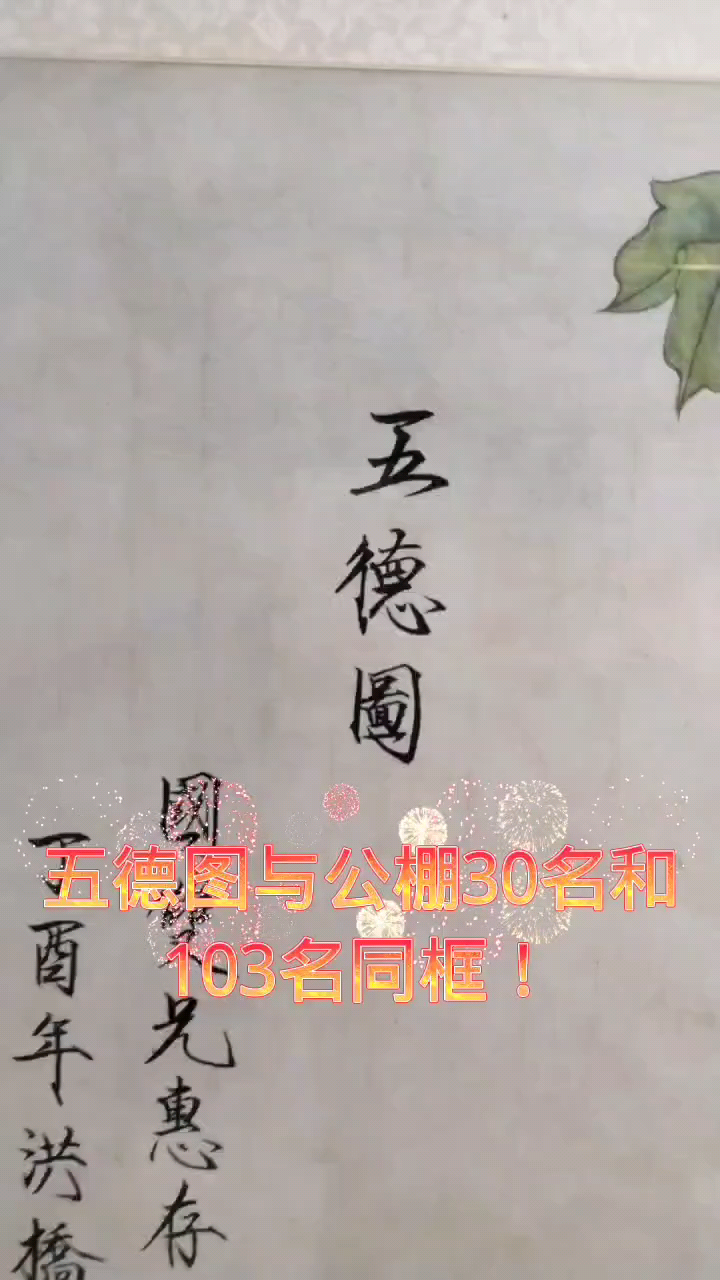 五德圖
國
兄惠存
丁酉年洪橋
五德图与公棚30名和
103名同框！